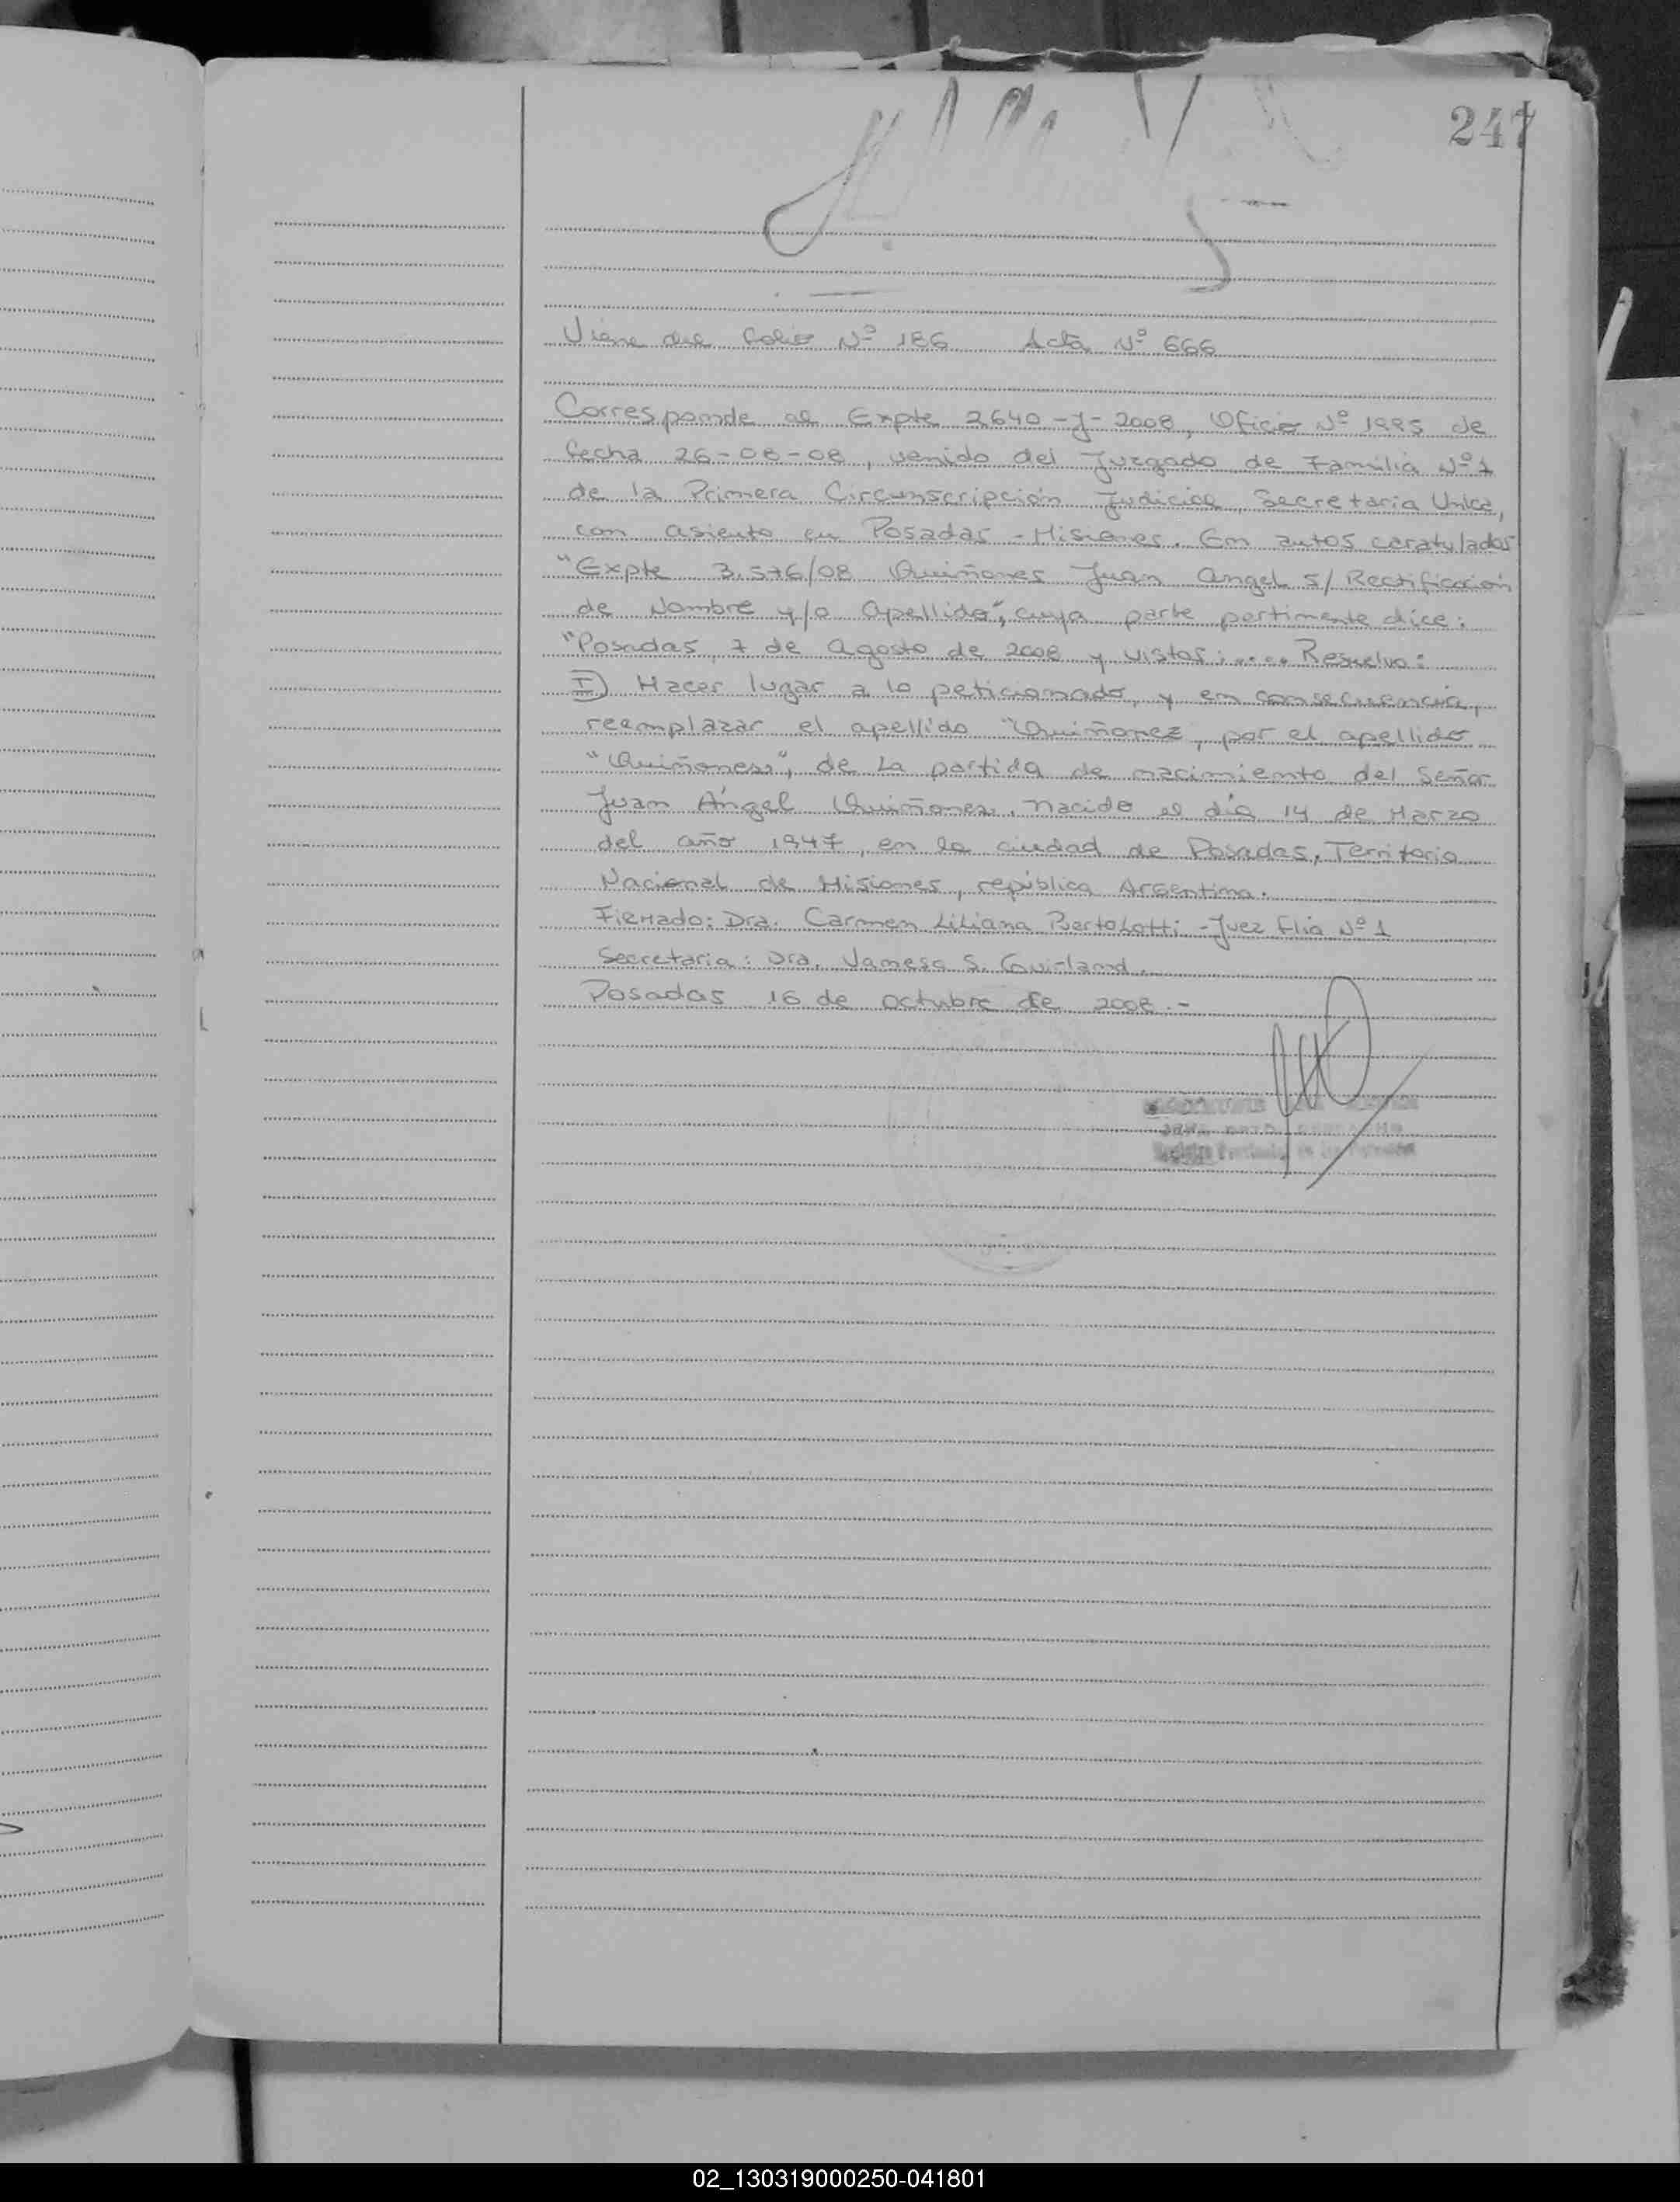 247
Viene del Folio Nº 186 Acta Nº 666
Corresponde al Expte 2640-J-2008, Oficio Nº 1995 de
fecha 26-08-08, venido del Juzgado de Familia Nº 1
de la Primera Circunscripción Judicial, Secretaria Unica,
con asiento en Posadas - Misiones. En autos caratulados
"Expte 3.576/08 Quiñones Juan Angel S/ Rectificación
de Nombre y/o Apellido", cuya parte pertinente dice:
"Posadas, 7 de Agosto de 2008 y vistos:.... Resuelvo:
I) Hacer lugar a lo peticionado, y en consecuencia,
reemplazar el apellido "Quiñonez, por el apellido
"Quiñones", de La partida de nacimiento del Señor
Juan Ángel Quiñones, nacido el día 14 de Marzo
del año 1947, en la ciudad de Posadas, Territorio
Nacional de Misiones, república Argentina.
Firmado: Dra. Carmen Liliana Bertolotti - Juez Flia Nº 1
Secretaria: Dra. Vanesa S.
Posadas 16 de octubre de 2008.-
02_130319000250-041801